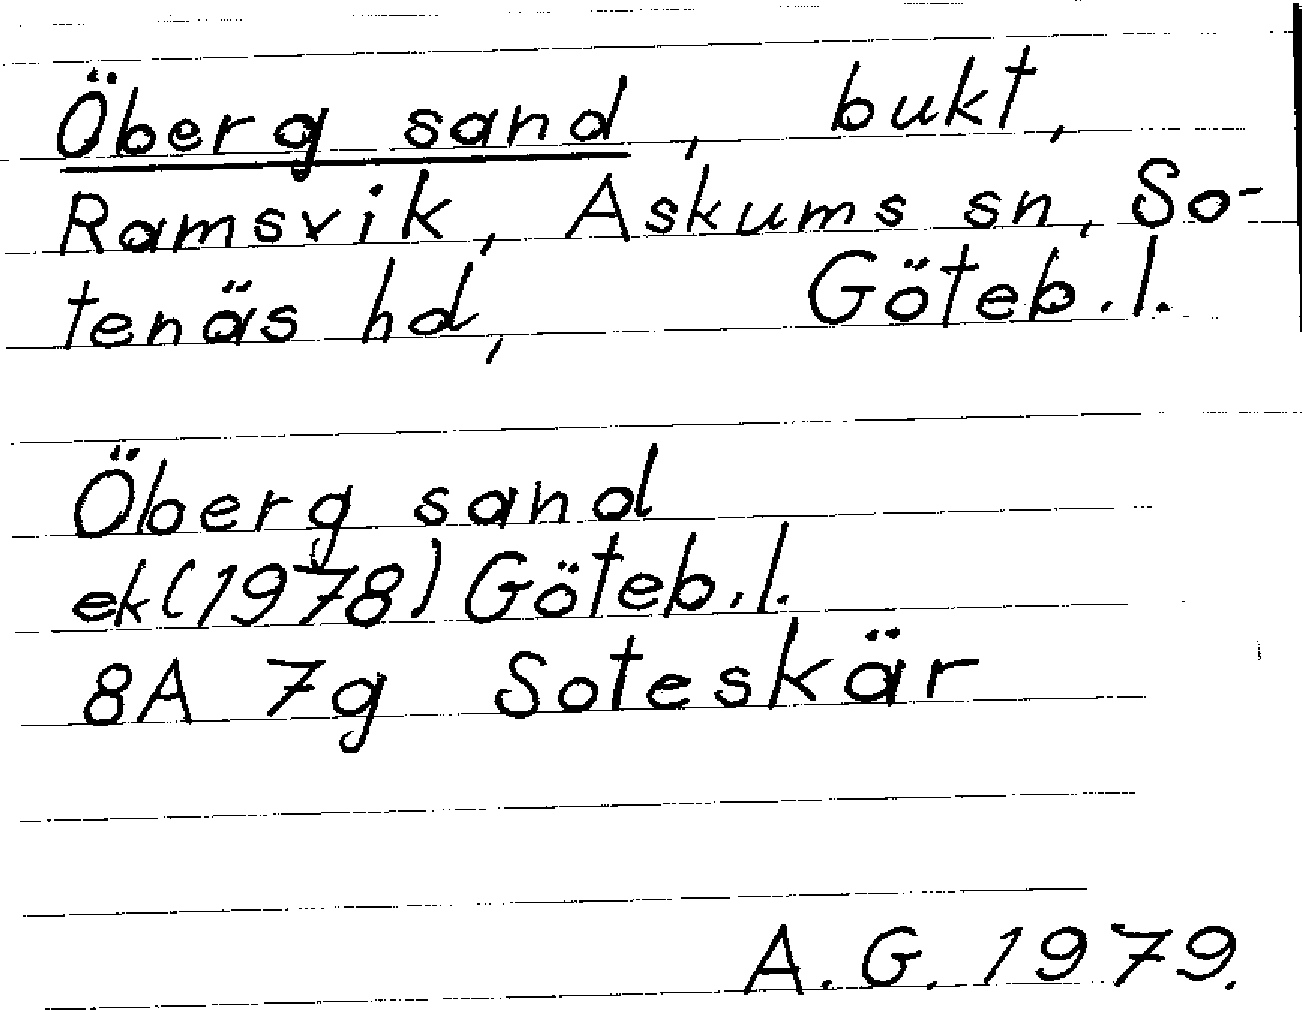 Öberg sand, bukt,
Ramsvik, Askums sn, So-
tenäs hd, Göteb. l.
Öberg sand
ek (1978) Göteb. l.
8A 7g Soteskär
A. G. 1979.